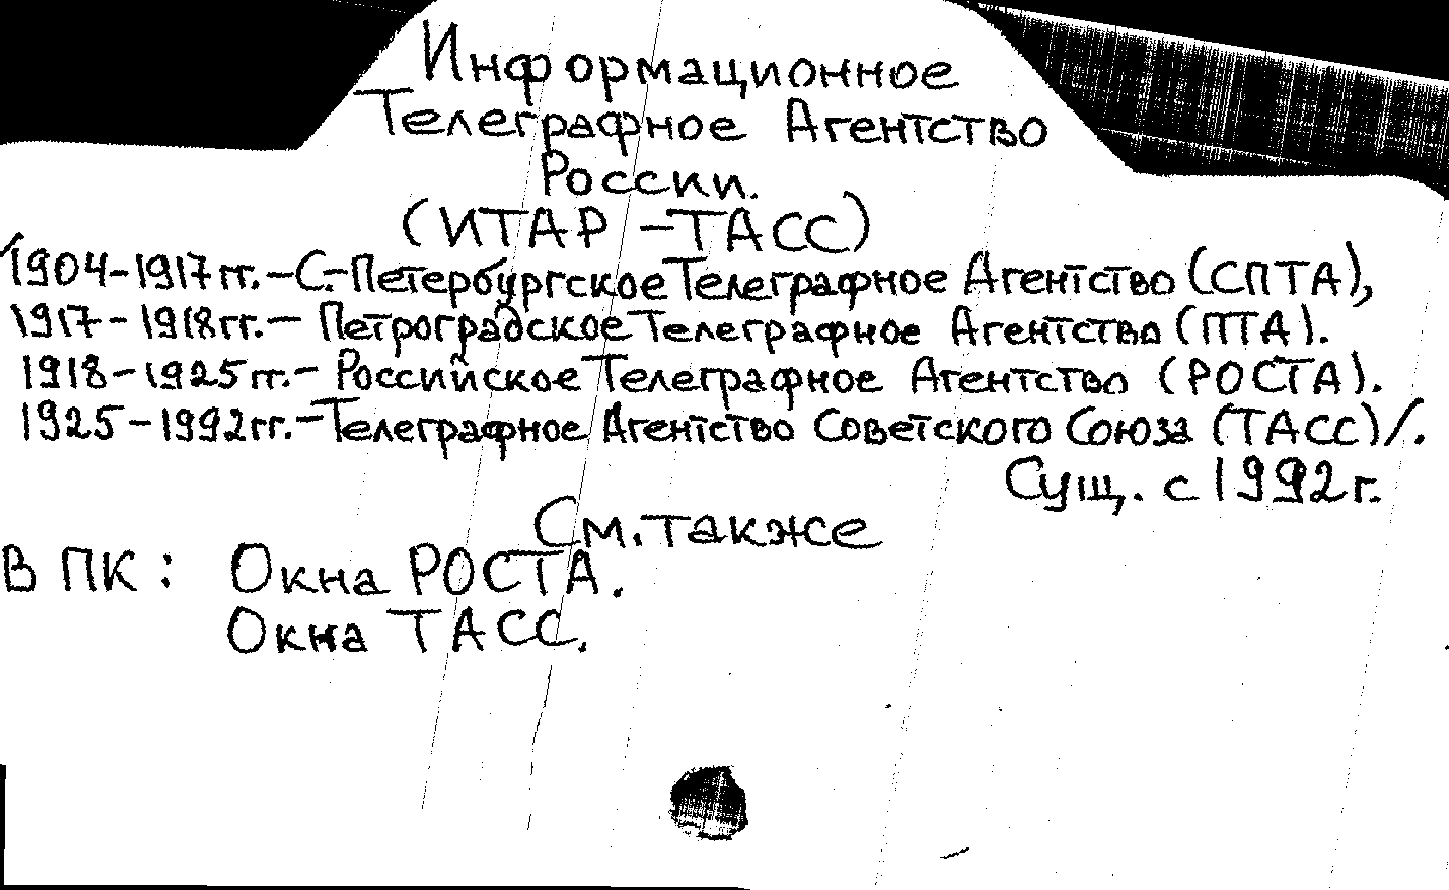 Информационное
Телеграфное Агентство
России.
(ИТАР-ТАСС)
/1904-1917гг.-С.-Петербургское Телеграфное Агентство (СПТА),
1917-1918гг.- Петроградское Телеграфное Агентство (ПТА).
1918-1925гг.- Российское Телеграфное Агентство (РОСТА).
1925-1992гг.-Телеграфное Агентство Советского Союза (ТАСС)/.
Сущ. с 1992г.
См. также
В ПК: Окна РОСТА.
Окна ТАСС.